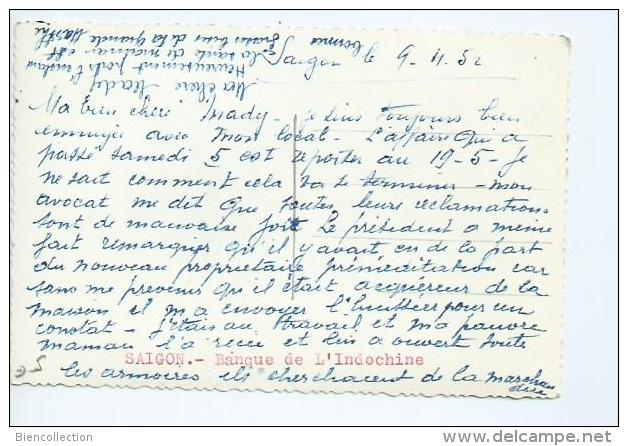 Saigon le 9-4.52
Ma bien chère Mady - je suis toujours bien
ennuyée avec mon local - L'affaire qui a
passé samedi 5 est reporter au 19-5- Je
ne sait comment cela va se terminer - mon
avocat me dit que toutes leurs réclamations
sont de mauvaise foit Le président a même
fait remarquer qu'il y avait eu de la part
du nouveau propriétaire préméditation car
sans me prevenir qu'il était acquéreur de la
maison il m'a envoyer l'huissier pour un
constat - j'étais au travail et ma pauvre
maman l'a recue et lui a ouvert toute
SAIGON.- Banque de L'Indochine
les armoires ils cherchaient de la marchan
dise
Ma chère Mady
Heureusement pour l'instant
la santé de maman est
bonne
Gros bises de ta grande Marthe
5€
Biencollection
http://www.delcampe.net